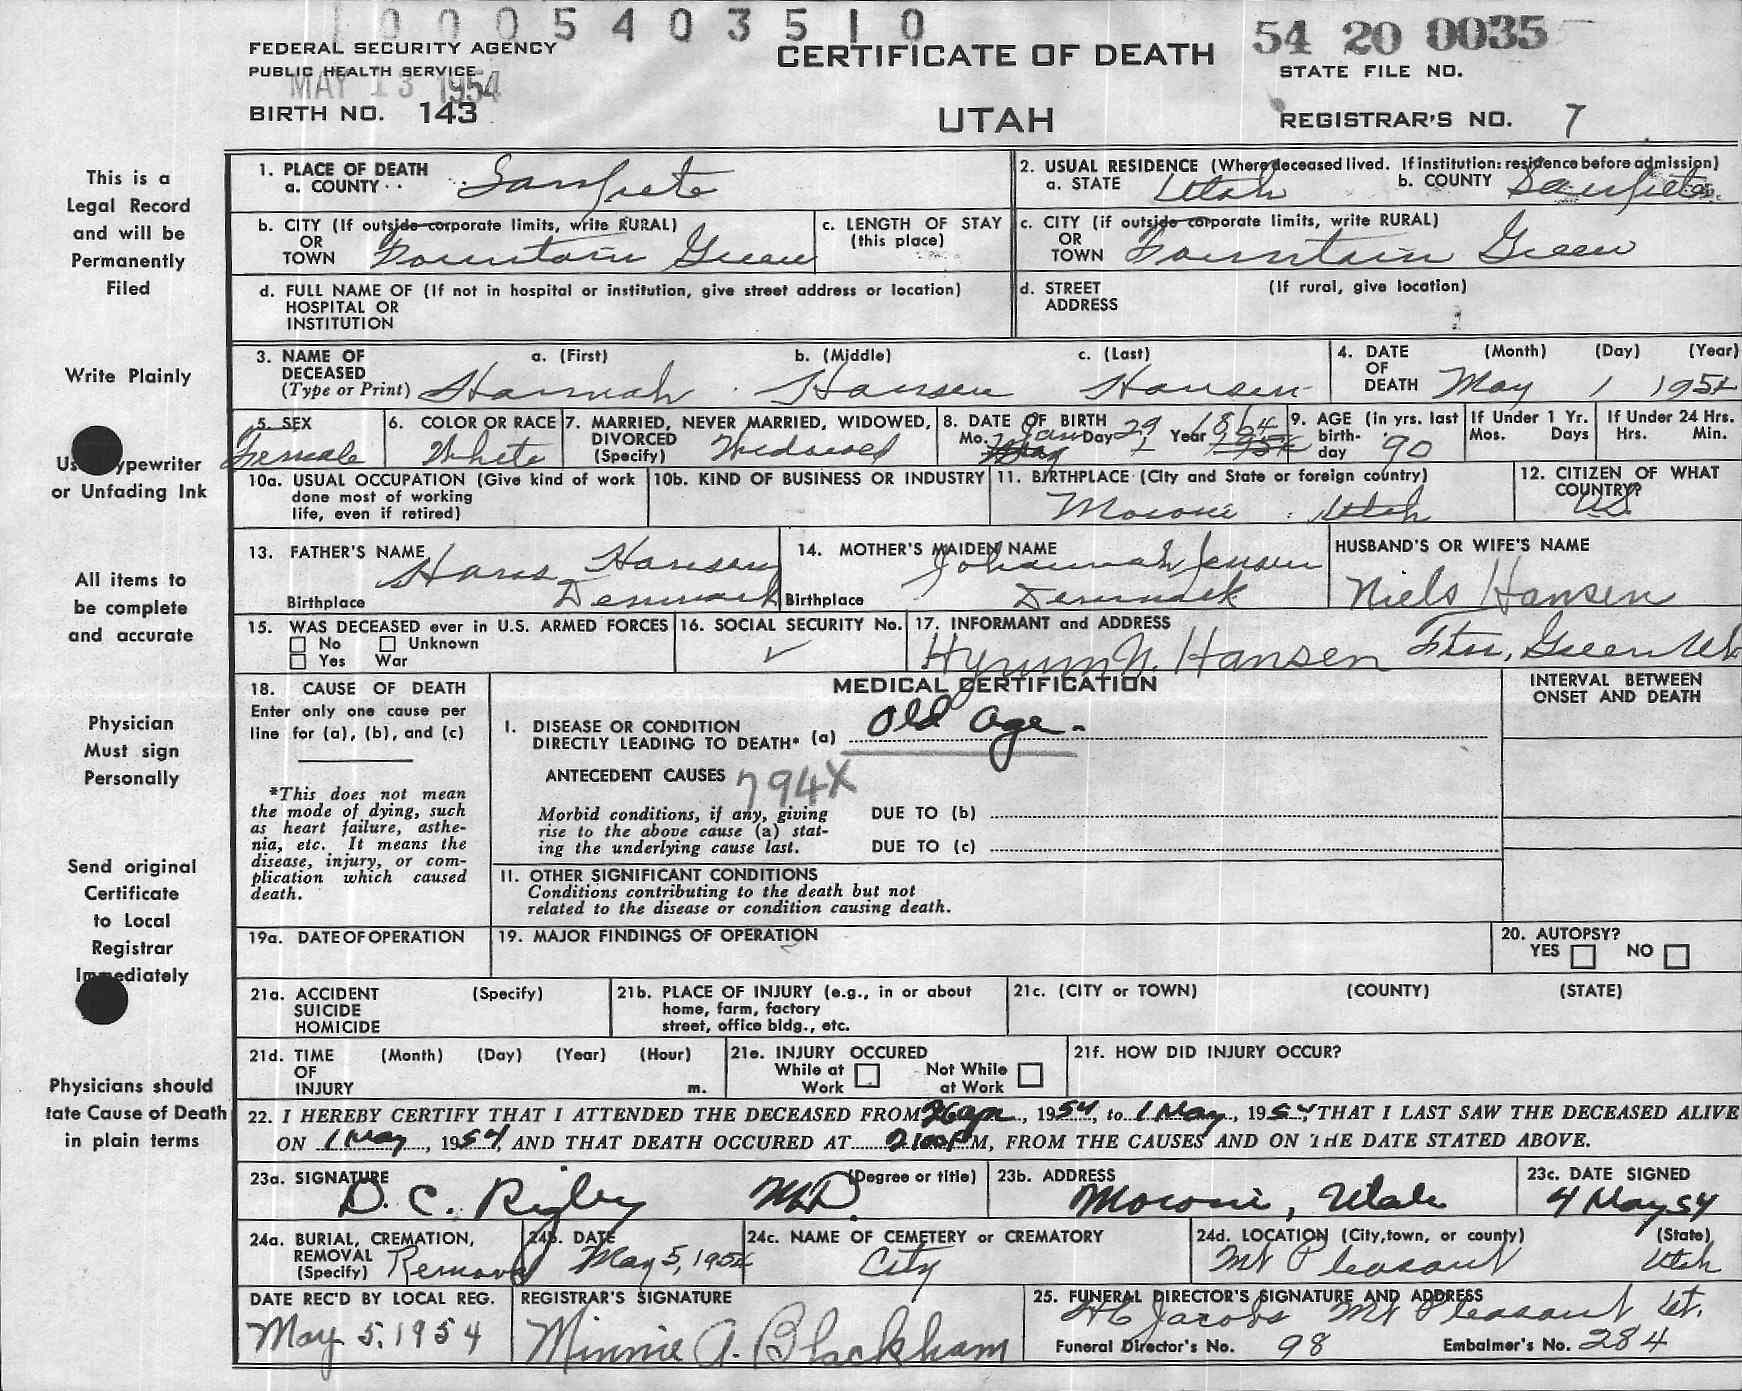 1000540351 0
54 20 0035
FEDERAL SECURITY AGENCY
CERTIFICATE OF DEATH
STATE FILE NO.
PUBLIC HEALTH SERVICE
MAY 13 1954
BIRTH NO. 143
UTAH
REGISTRAR'S NO. 7
This is a
Legal Record
and will be
Permanently
Filed
Write Plainly
Typewriter
or Unfading Ink
All items to
be complete
and accurate
Physician
Must sign
Personally
Send original
Certificate
to Local
Registrar
Immediately
Physicians should
tate Cause of Death
in plain terms
1. PLACE OF DEATH
a. COUNTY Sanpete
2. USUAL RESIDENCE (Where deceased lived. If institution: residence before admission)
a. STATE Utah b. COUNTY Sanpete
b. CITY (If outside corporate limits, write RURAL)
OR
TOWN Fountain Green
c. LENGTH OF STAY
(this place)
c. CITY (if outside corporate limits, write RURAL)
OR
TOWN Fountain Green
d. FULL NAME OF (If not in hospital or institution, give street address or location)
HOSPITAL OR
INSTITUTION
d. STREET (If rural, give location)
ADDRESS
3. NAME OF DECEASED (Type or Print)
a. (First) b. (Middle) c. (Last)
Hannah Hansen Hansen
4. DATE OF DEATH (Month) (Day) (Year)
May 1 1954
5. SEX
Female
6. COLOR OR RACE
White
7. MARRIED, NEVER MARRIED, WIDOWED,
DIVORCED
(Specify) Widowed
8. DATE OF BIRTH
Mo. Jan Day 29 Year 1864
May 1 1954
9. AGE (in yrs. last
birth-
day 90
If Under 1 Yr.
Mos. Days
If Under 24 Hrs.
Hrs. Min.
10a. USUAL OCCUPATION (Give kind of work
done most of working
life, even if retired)
10b. KIND OF BUSINESS OR INDUSTRY
11. BIRTHPLACE (City and State or foreign country)
Moroni Utah
12. CITIZEN OF WHAT
COUNTRY?
US
13. FATHER'S NAME Hans Hansen
Birthplace Denmark
14. MOTHER'S MAIDEN NAME
Johannah Jensen
Birthplace Denmark
HUSBAND'S OR WIFE'S NAME
Niels Hansen
15. WAS DECEASED ever in U.S. ARMED FORCES
No Unknown
Yes War
16. SOCIAL SECURITY No.
17. INFORMANT and ADDRESS
Hyrum N. Hansen Ftn, Green Ut
18. CAUSE OF DEATH
Enter only one cause per
line for (a), (b), and (c)
*This does not mean
the mode of dying, such
as heart failure, asthe-
nia, etc. It means the
disease, injury, or com-
plication which caused
death.
MEDICAL CERTIFICATION
I. DISEASE OR CONDITION
DIRECTLY LEADING TO DEATH* (a) Old Age.
ANTECEDENT CAUSES 794X
Morbid conditions, if any, giving
rise to the above cause (a) stat-
ing the underlying cause last.
DUE TO (b)
DUE TO (c)
II. OTHER SIGNIFICANT CONDITIONS
Conditions contributing to the death but not
related to the disease or condition causing death.
INTERVAL BETWEEN
ONSET AND DEATH
19a. DATE OF OPERATION
19. MAJOR FINDINGS OF OPERATION
20. AUTOPSY?
YES NO
21a. ACCIDENT (Specify)
SUICIDE
HOMICIDE
21b. PLACE OF INJURY (e.g., in or about
home, farm, factory
street, office bldg., etc.
21c. (CITY or TOWN) (COUNTY) (STATE)
21d. TIME (Month) (Day) (Year) (Hour)
OF
INJURY m.
21e. INJURY OCCURED
While at Work
Not While at Work
21f. HOW DID INJURY OCCUR?
22. I HEREBY CERTIFY THAT I ATTENDED THE DECEASED FROM 26 apr, 1954, to 1 May, 1954, THAT I LAST SAW THE DECEASED ALIVE
ON 1 May, 1954, AND THAT DEATH OCCURED AT 2:00 PM, FROM THE CAUSES AND ON THE DATE STATED ABOVE.
23a. SIGNATURE (Degree or title)
D. C. Rigby M.D.
23b. ADDRESS
Moroni, Utah
23c. DATE SIGNED
4 May 54
24a. BURIAL, CREMATION,
REMOVAL
(Specify) Removal
24b. DATE
May 5, 1954
24c. NAME OF CEMETERY or CREMATORY
City
24d. LOCATION (City, town, or county) (State)
Mt Pleasant Utah
DATE REC'D BY LOCAL REG.
May 5, 1954
REGISTRAR'S SIGNATURE
Minnie A. Blackham
25. FUNERAL DIRECTOR'S SIGNATURE AND ADDRESS
HC Jacobs Mt Pleasant Ut.
Funeral Director's No. 98 Embalmer's No. 284